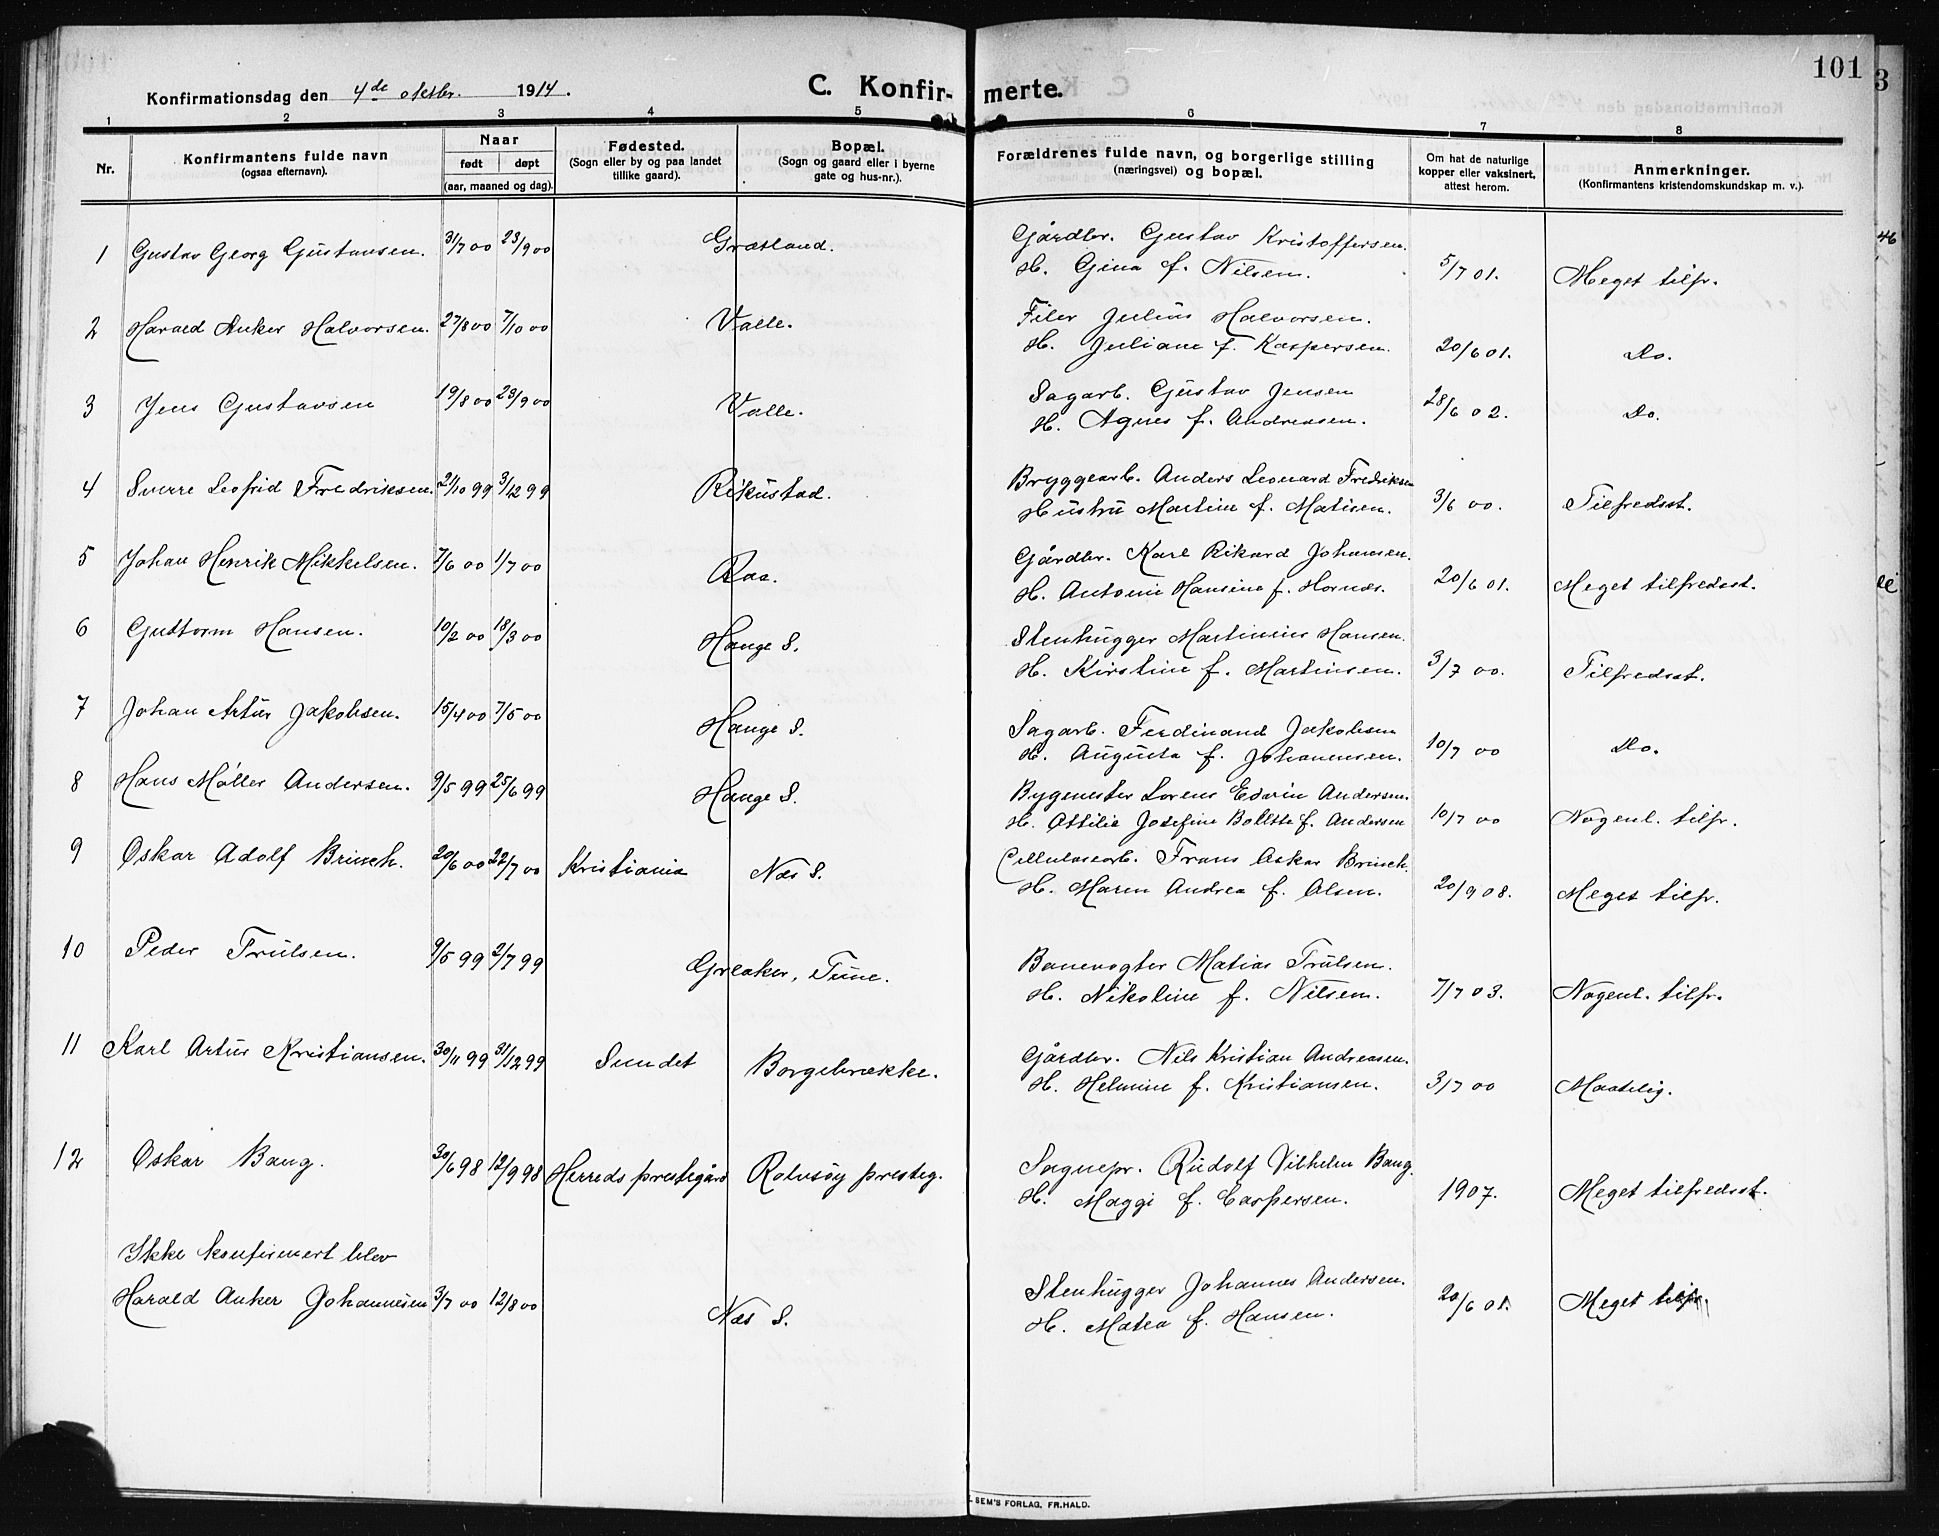 101
3
Konfirmationsdag den 4de oktbr. 1914.
C. Konfirmerte.
1 2 3 4 5 6 7 8
Nr.
Konfirmantens fulde navn
(ogsaa efternavn).
Naar
født døpt
(aar, maaned og dag).
Fødested.
(Sogn eller by og paa landet
tillike gaard).
Bopæl.
(Sogn og gaard eller i byerne
gate og hus-nr.).
Forældrenes fulde navn, og borgerlige stilling
(næringsvei) og bopæl.
Om hat de naturlige
kopper eller vaksinert,
attest herom.
Anmerkninger.
(Konfirmantens kristendomskundskap m. v.).
1 Gustav Georg Gustavsen. 3/7 00 23/9 00 Græsland. Gårdbr. Gustav Kristoffersen.
H. Gina f. Nilsen. 5/7 01. Meget tilfr.
2 Harald Anker Halvorsen. 27/8 00 7/10 00 Valle. Filer Julius Halvorsen.
H. Juliane f. Kaspersen. 20/6 01. Do.
3 Jens Gustavsen 19/8 00 23/9 00 Valle. Sagarb. Gustav Jensen
H. Agnes f. Andreasen. 28/6 02. Do.
4 Sverre Leofrid Fredriksen. 21/10 99 3/12 99 Rikustad. Bryggearb. Anders Leonard Fredriksen
Hustru Martine f. Matisen. 3/6 00. Tilfredsst.
5 Johan Henrik Mikkelsen. 7/6 00 1/7 00 Raa. Gårdbr. Karl Rikard Johansen.
H. Antonie Hansine f. Hornæs. 20/6 01. Meget tilfredsst.
6 Guttorm Hansen. 10/2 00 18/3 00 Hauge S. Stenhugger Martinius Hansen.
H. Kirstine f. Martinsen. 3/7 00. Tilfredsst.
7 Johan Artur Jakobsen. 15/4 00 7/5 00 Hauge S. Sagarb. Ferdinand Jakobsen
H. Augusta f. Johannesen. 10/7 00 Do.
8 Hans Møller Andersen. 9/5 99 25/6 99 Hauge S. Bygmester Lorens Edvin Andersen.
H. Ottilie Josefine Bollette f. Andersen 10/7 00 Nogenl. tilfr.
9 Oskar Adolf Brinch. 20/6 00 22/7 00 Kristiania Næs S. Cellulosearb. Frans Oskar Brinch.
H. Maren Andrea f. Olsen. 20/9 08. Meget tilfr.
10 Peder Trulsen. 9/5 99 2/7 99 Greaker, Tune. Banevogter Matias Trulsen.
H. Nikoline f. Nilsen. 7/7 03. Nogenl. tilfr.
11 Karl Artur Kristiansen. 30/11 99 31/12 99 Sundet Borgebrække. Gårdbr. Nils Kristian Andreasen.
H. Helmine f. Kristiansen. 3/7 00 Maatelig.
12 Oskar Bang. 30/6 98 12/9 98 Herreds prestegård Rolvsøy presteg. Sognepr. Rudolf Vilhelm Bang.
H. Maggi f. Caspersen. 1907. Meget tilfredsst.
Ikke konfirmert blev
Harald Anker Johannesen 3/7 00 12/8 00 Næs S. Stenhugger Johannes Andersen.
H. Matea f. Hansen. 20/6 01. Meget tilfr.
SEM'S FORLAG, FR.HALD.